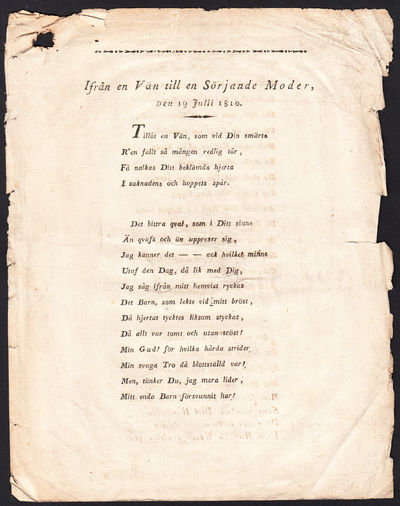 Ifrån en Vän till en Sörjande Moder,
Den 19 Julii 1810.
Tillåt en Vän, som vid Din smärta
R'en fällt så mången redlig tår,
Få nalkas Ditt beklämda hjerta
I saknadens och hoppets spår.
Det bittra qval, som i Ditt sinne
Än qväfs och än uppreser sig,
Jag känner det — — ack hvilket minne
Utaf den Dag, då lik med Dig,
Jag såg ifrån mitt hemvist ryckas
Det Barn, som lekte vid mitt bröst,
Då hjertat tycktes liksom styckas,
Då allt var tomt och utan tröst!
Min Gud! för hvilka hårda strider
Min svaga Tro då blottställd var!
Men, tänker Du, jag mera lider,
Mitt enda Barn försvunnit har!